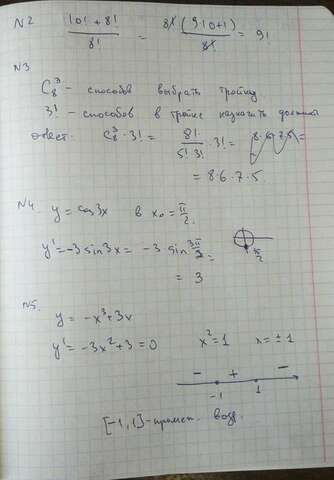 N2 (10! + 8!)/8! = 8!(9·10+1)/8! = 91
N3
C₈³ - способов выбрать тройку
3! - способов в тройке назначить должной
ответ. C₈³ · 3! = 8!/(5! 3!) · 3! =
= 8 6 · 7 · 5 .
N4. y = cos3x в x₀ = π/2 .
y' = -3 sin3x = -3 sin 3π/2 =
= 3
N5.
y = -x³ + 3x
y' = -3x² + 3 = 0 x² = 1 x = ±1
- + -
-1 1
[-1, 1] - промеж. возр.